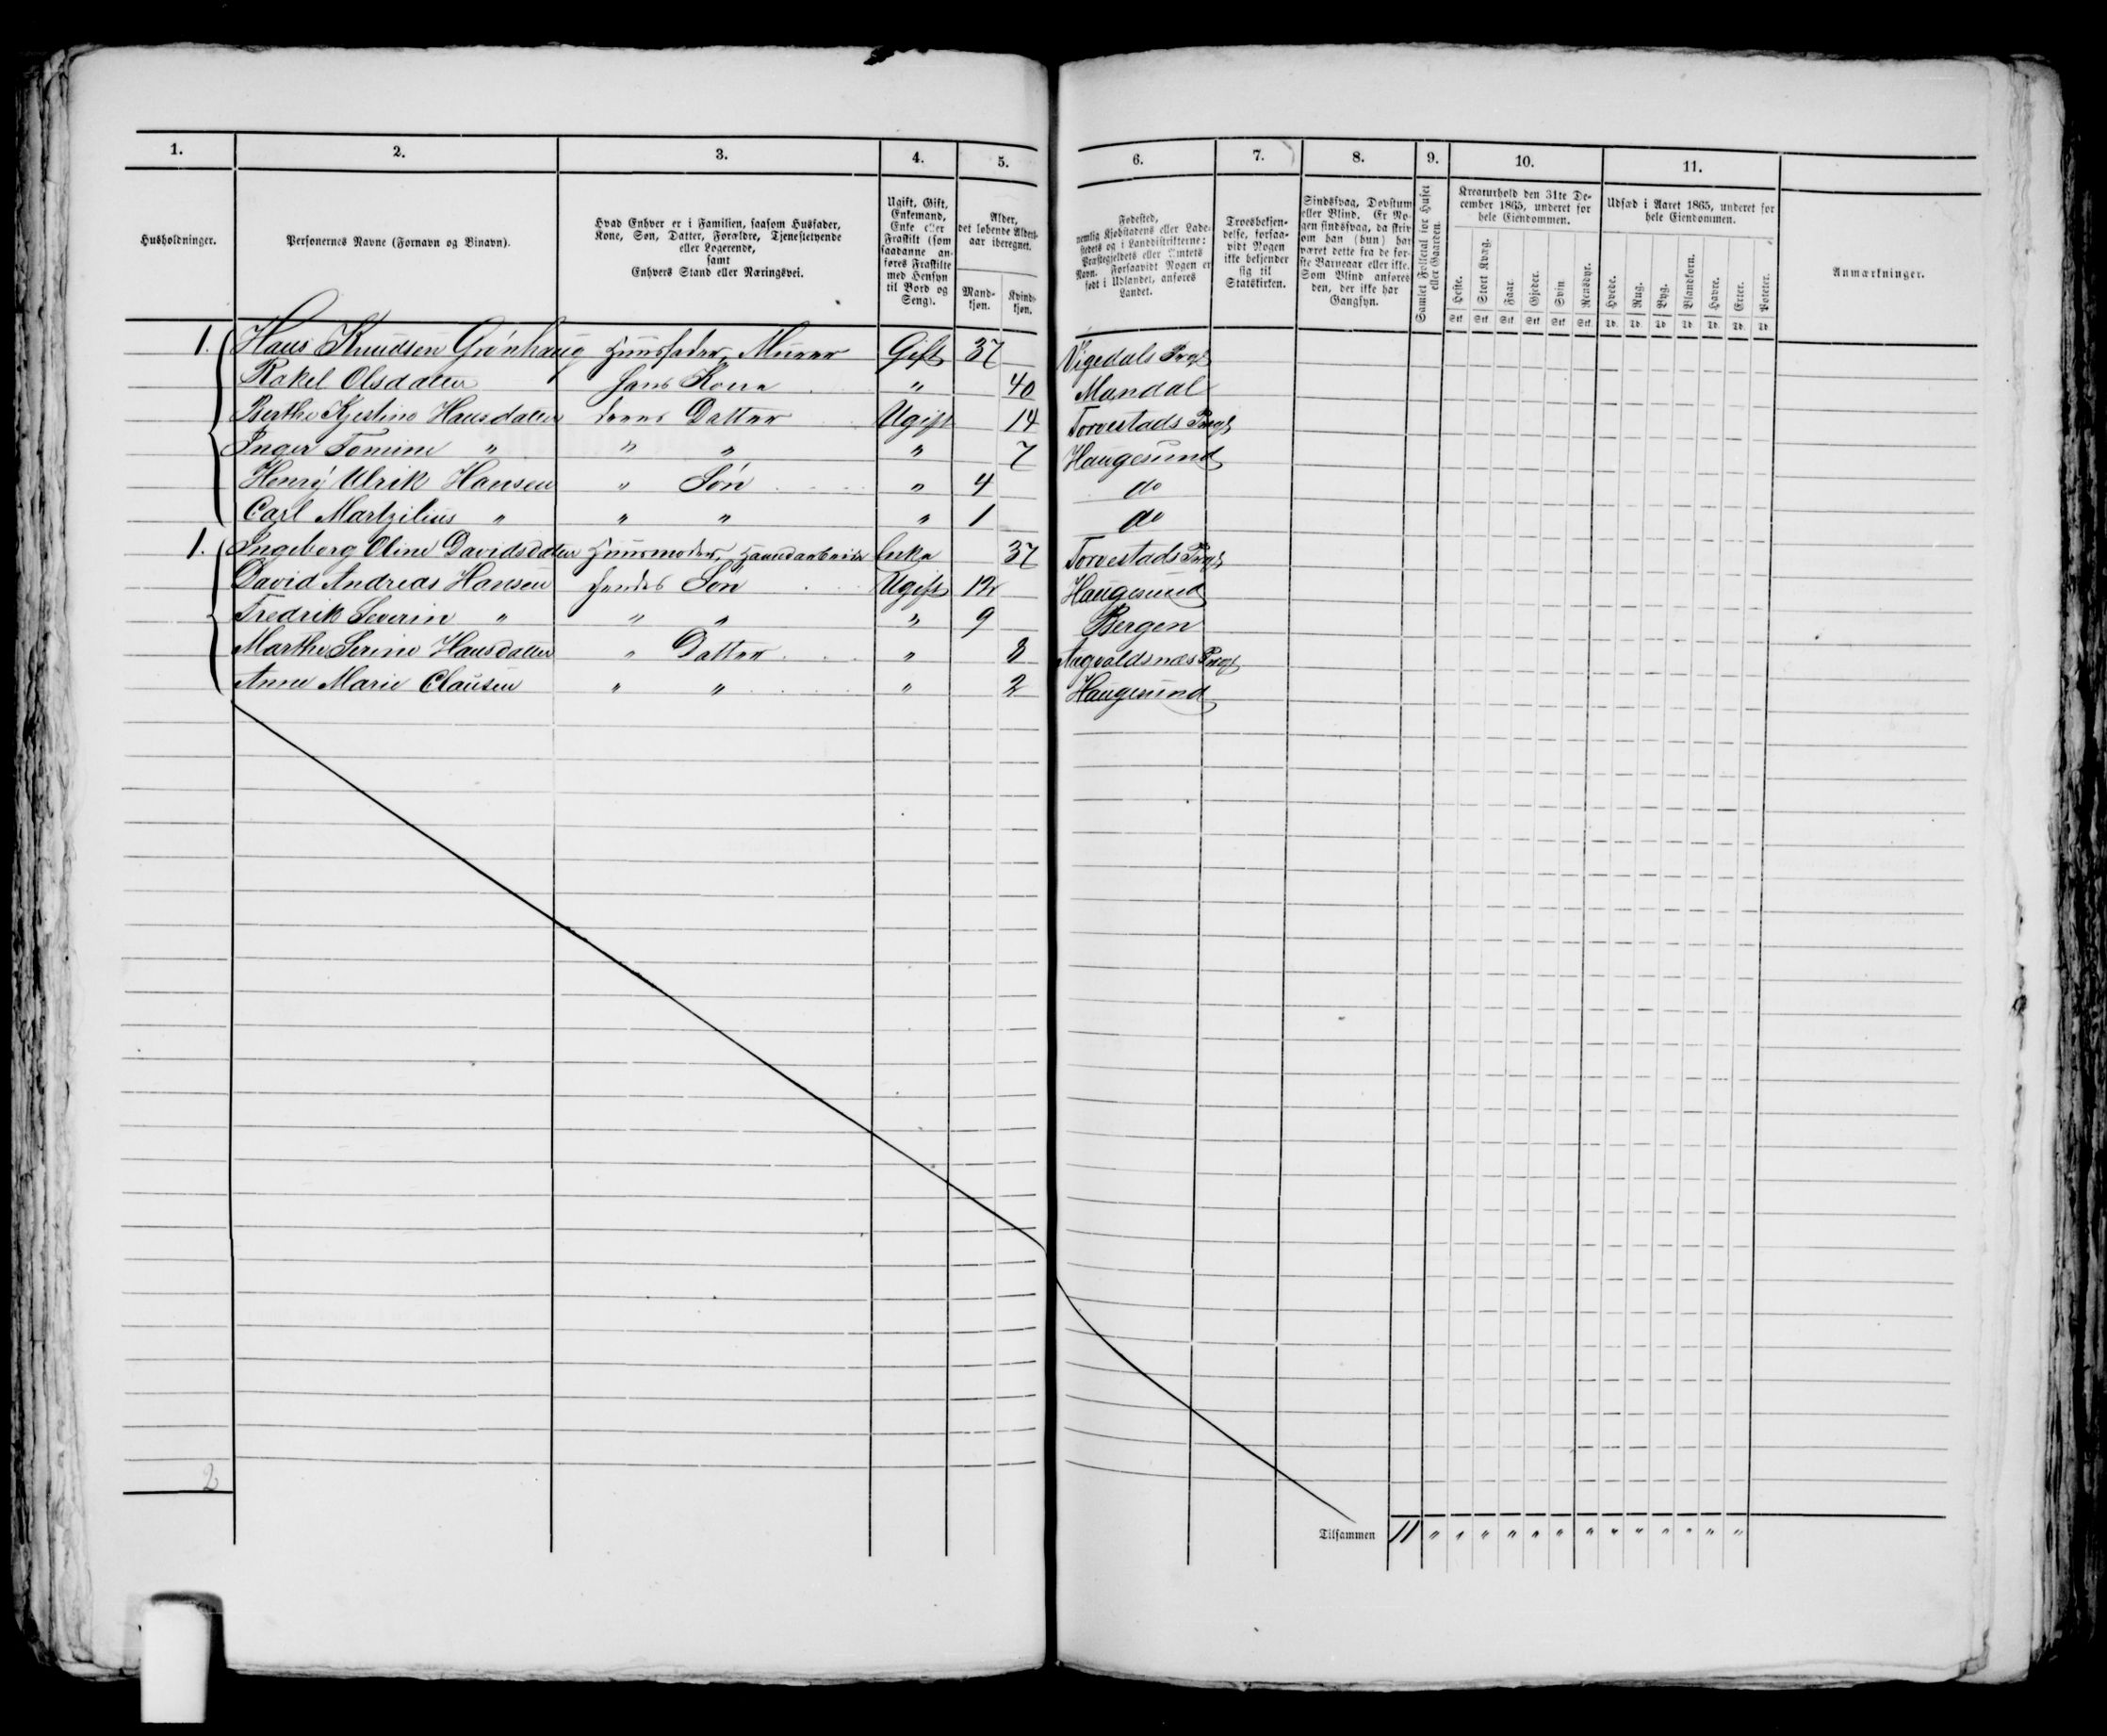 1. 2. 3. 4. 5. 6. 7. 8. 9. 10. 11.
Husholdninger.
Personernes Navne (Fornavn og Binavn).
Hvad Enhver er i Familien, saasom Husfader,
Kone, Søn, Datter, Forældre, Tjenestetyende
eller Logerende,
samt
Enhvers Stand eller Næringsvei.
Ugift, Gift,
Enkemand,
Enke eller
Fraskilt (som
saadanne an-
føres Fraskilte
med Hensyn
til Bord og
Seng).
Alder,
det løbende Alders-
aar iberegnet.
Mand-
kjøn.
Kvind-
kjøn.
Fødested,
nemlig Kjøbstadens eller Lade-
stedets og i Landdistrikterne:
Præstegjeldets eller Amtets
Navn. Forsaavidt Nogen er
født i Udlandet, anføres
Landet.
Troesbekjen-
delse, forsaa-
vidt Nogen
ikke bekjender
sig til
Statskirken.
Sindssvag, Døvstum
eller Blind. Er No-
gen sindssvag, da skriv
om han (hun) har
været dette fra de før-
ste Barneaar eller ikke.
Som Blind anføres
den, der ikke har
Gangsyn.
Samlet Folketal for Huset
eller Gaarden.
Kreaturhold den 31te De-
cember 1865, underet for
hele Eiendommen.
Heste. Stort Kvæg. Faar. Gjeder. Svin. Rensdyr.
Stk. Stk. Stk. Stk. Stk. Stk.
Udsæd i Aaret 1865, underet for
hele Eiendommen.
Hvede. Rug. Byg. Blandkorn. Havre. Erter. Poteter.
Td. Td. Td. Td. Td. Td. Td.
Anmærkninger.
1. Hans Knudsen Grönhaug Huusfader, Murer Gift 37 Vigedals Prgl
Rakel Olsdatter hans Kone " 40 Mandal
Berthe Kjestine Hansdatter deres Datter Ugift 14 Torvestads Prgl
Inger Tomine " " " " 7 Haugesund
Henry Ulrik Hansen " Sön " 4 do
Carl Martzilius " " " " 1 do
1. Ingeborg Oline Davidsdatter Huusmoder, Haandarbeide Enke 37 Torvestads Prgl
David Andreas Hansen hendes Søn Ugift 12 Haugesund
Fredrik Severin " " " " 9 Bergen
Marthe Serine Hansdatter " Datter " 3 Augvaldsnæs Prgl
Anne Marie Clausen " " " 2 Haugesund
2
Tilsammen 11 " " " " " " " " " " " " "